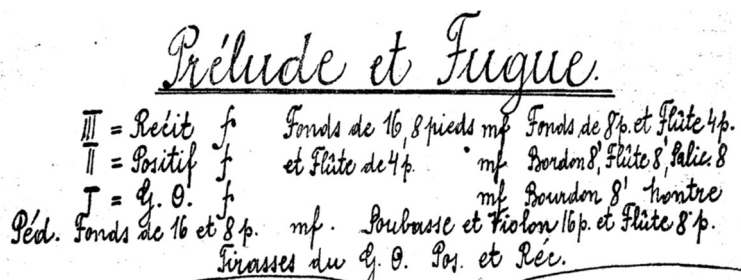 Prélude et Fugue.
III = Récit f Fonds de 16, 8 pieds mf Fonds de 8 p. et Flûte 4 p.
II = Positif f et Flûte de 4 p. mf Bordon 8', Flûte 8', Salic. 8
I = G. O. f mf Bourdon 8' hontre
Péd. Fonds de 16 et 8 p. mf. Soubasse et Violon 16 p. et Flûte 8 p.
Tirasses du G. O. Pos. et Réc.